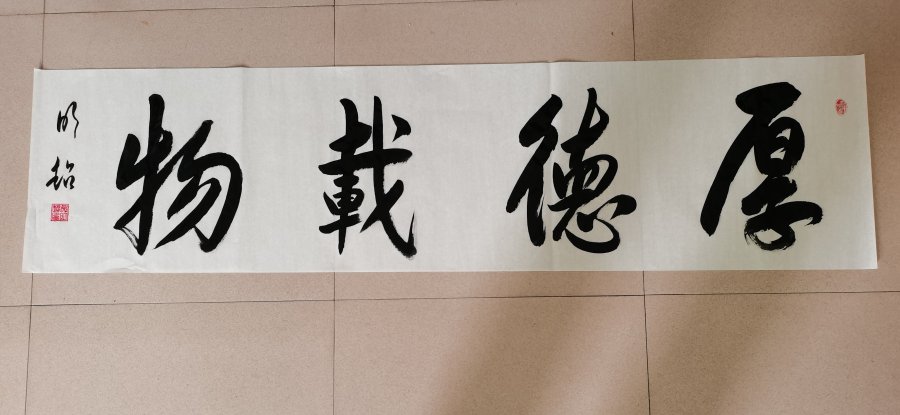 厚德載物
明超